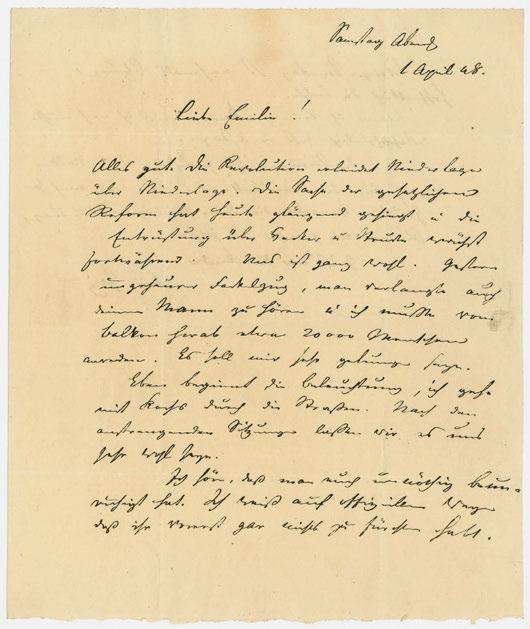 Samstag Abend
1 April 48.
Liebe Emilie!
Alles gut. Die Revolution erleidet Niederlage
über Niederlage. Die Sache der gesetzlichen
Reform hat heute glänzend gesiegt u die
Entrüstung über Hecker u Struve wächst
fortwährend. Uns ist ganz wohl. Gestern
ungeheurer Fackelzug, man verlangte auch
deinen Mann zu hören u ich mußte vom
Balkon herab etwa 20000 Menschen
anreden. Es soll mir sehr gelungen seyn.
Eben beginnt die Beleuchtung, ich gehe
mit Kochs durch die Straßen. Nach den
anstrengenden Sitzungen lassen wir es uns
sehr wohl seyn.
Ich höre, daß man euch unnöthig beun-
ruhigt hat. Ich weiß auf offiziellem Wege
daß ihr vorerst gar nichts zu fürchten habt.